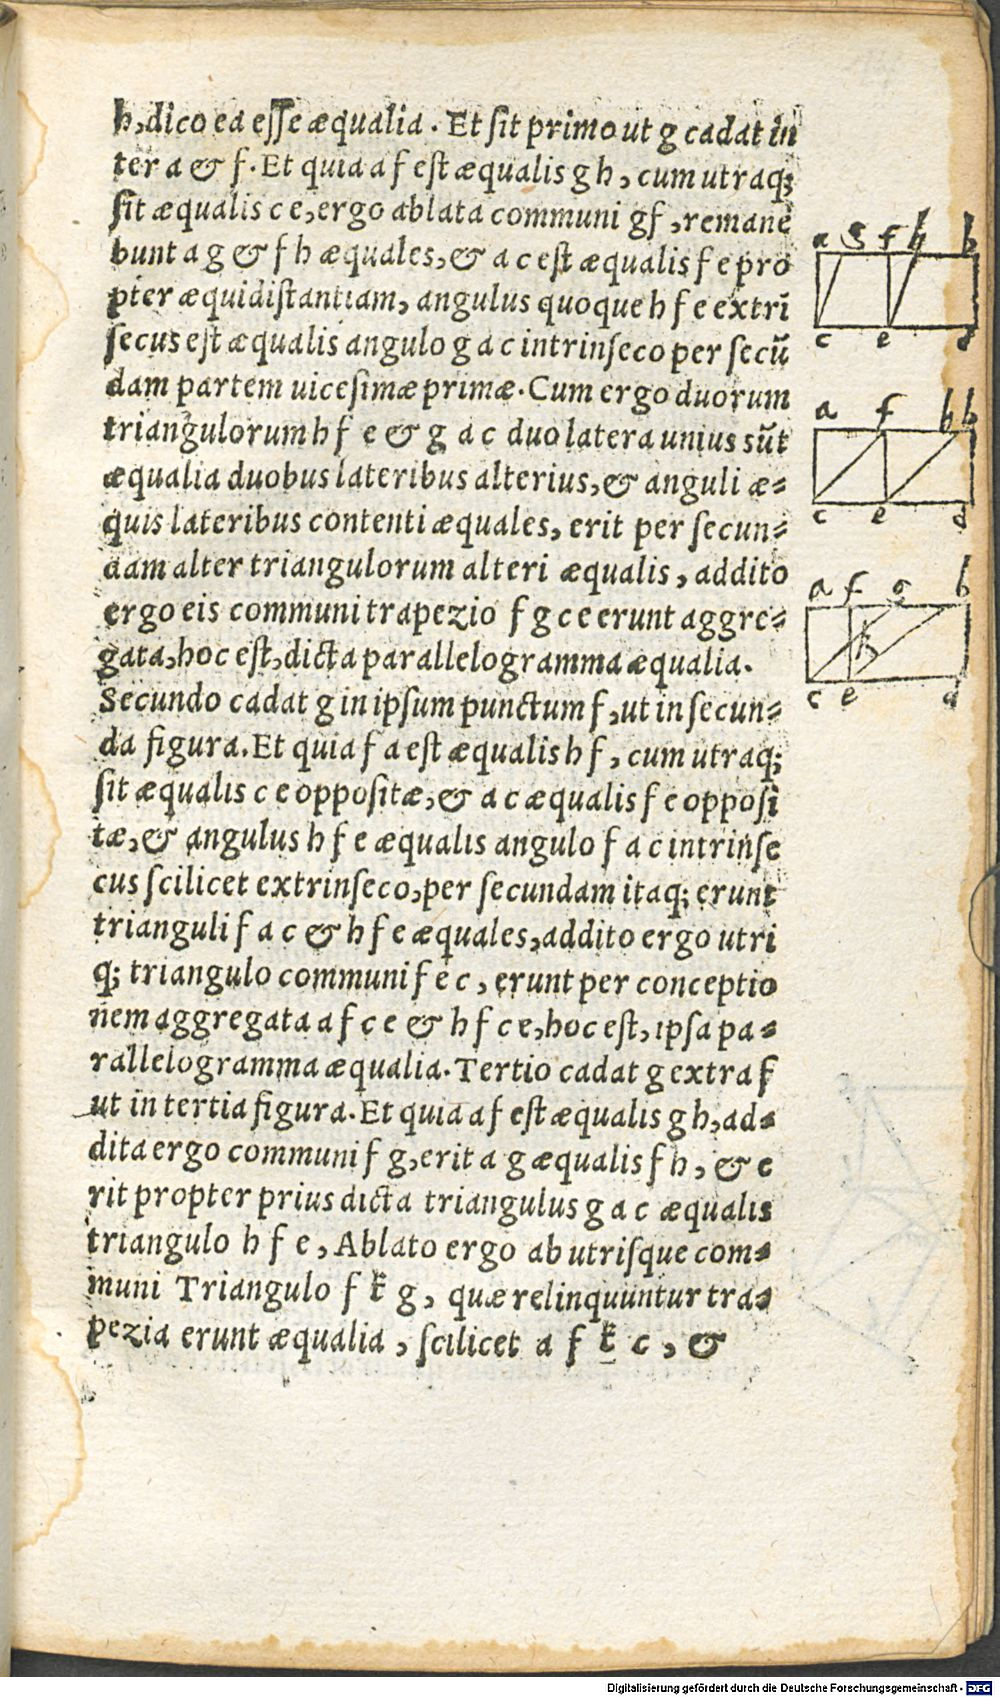 h, dico ea eſſe æqualia. Et ſit primo ut g cadat in
ter a & f. Et quia a f eſt æqualis g h, cum utraq;
ſit æqualis c e, ergo ablata communi gf, remanē
bunt a g & f h æquales, & a c eſt æqualis f e pro
pter æquidiſtantiam, angulus quoque h f e extrī
ſecus eſt æqualis angulo g a c intrinſeco per ſecū
dam partem uiceſimæ primæ. Cum ergo duorum
triangulorum h f e & g a c duo latera unius sūt
æqualia duobus lateribus alterius, & anguli æ=
quis lateribus contenti æquales, erit per ſecun=
dam alter triangulorum alteri æqualis, addito
ergo eis communi trapezio f g c e erunt aggre=
gata, hoc eſt, dicta parallelogramma æqualia.
Secundo cadat g in ipſum punctum f, ut in ſecun=
da figura. Et quia f a eſt æqualis h f, cum utraq;
ſit æqualis c e oppoſitæ, & a c æqualis f e oppoſi
tæ, & angulus h f e æqualis angulo f a c intrinſe
cus ſcilicet extrinſeco, per ſecundam itaq; erunt
trianguli f a c & h f e æquales, addito ergo utri
q; triangulo communi f e c, erunt per conceptio
nem aggregata a f c e & h f c e, hoc eſt, ipſa pa=
rallelogramma æqualia. Tertio cadat g extra f
ut in tertia figura. Et quia a f eſt æqualis g h, ad=
dita ergo communi f g, erit a g æqualis f h, & e
rit propter prius dicta triangulus g a c æqualis
triangulo h f e, Ablato ergo ab utriſque com=
muni Triangulo f k g, quæ relinquuntur tra=
pezia erunt æqualia, ſcilicet a f k c, &
a g f h b
c e d
a f h b
c e d
a f g b
h
c e d
Digitalisierung gefördert durch die Deutsche Forschungsgemeinschaft - DFG